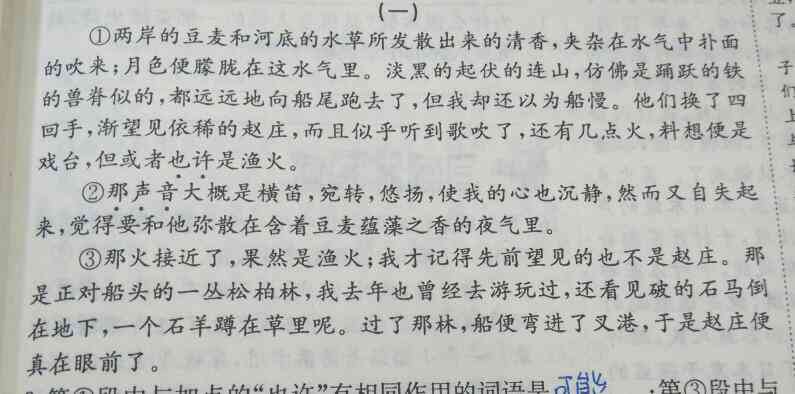 (一)
①两岸的豆麦和河底的水草所发散出来的清香,夹杂在水气中扑面
的吹来;月色便朦胧在这水气里。淡黑的起伏的连山,仿佛是踊跃的铁
的兽脊似的,都远远地向船尾跑去了,但我却还以为船慢。他们换了四
回手,渐望见依稀的赵庄,而且似乎听到歌吹了,还有几点火,料想便是
戏台,但或者也许是渔火。
②那声音大概是横笛,宛转,悠扬,使我的心也沉静,然而又自失起
来,觉得要和他弥散在含着豆麦蕴藻之香的夜气里。
③那火接近了,果然是渔火;我才记得先前望见的也不是赵庄。那
是正对船头的一丛松柏林,我去年也曾经去游玩过,还看见破的石马倒
在地下,一个石羊蹲在草里呢。过了那林,船便弯进了叉港,于是赵庄便
真在眼前了。
第①段中与加点的“也许”有相同作用的词语是 可能 ;第③段中与
了。
子
们
上